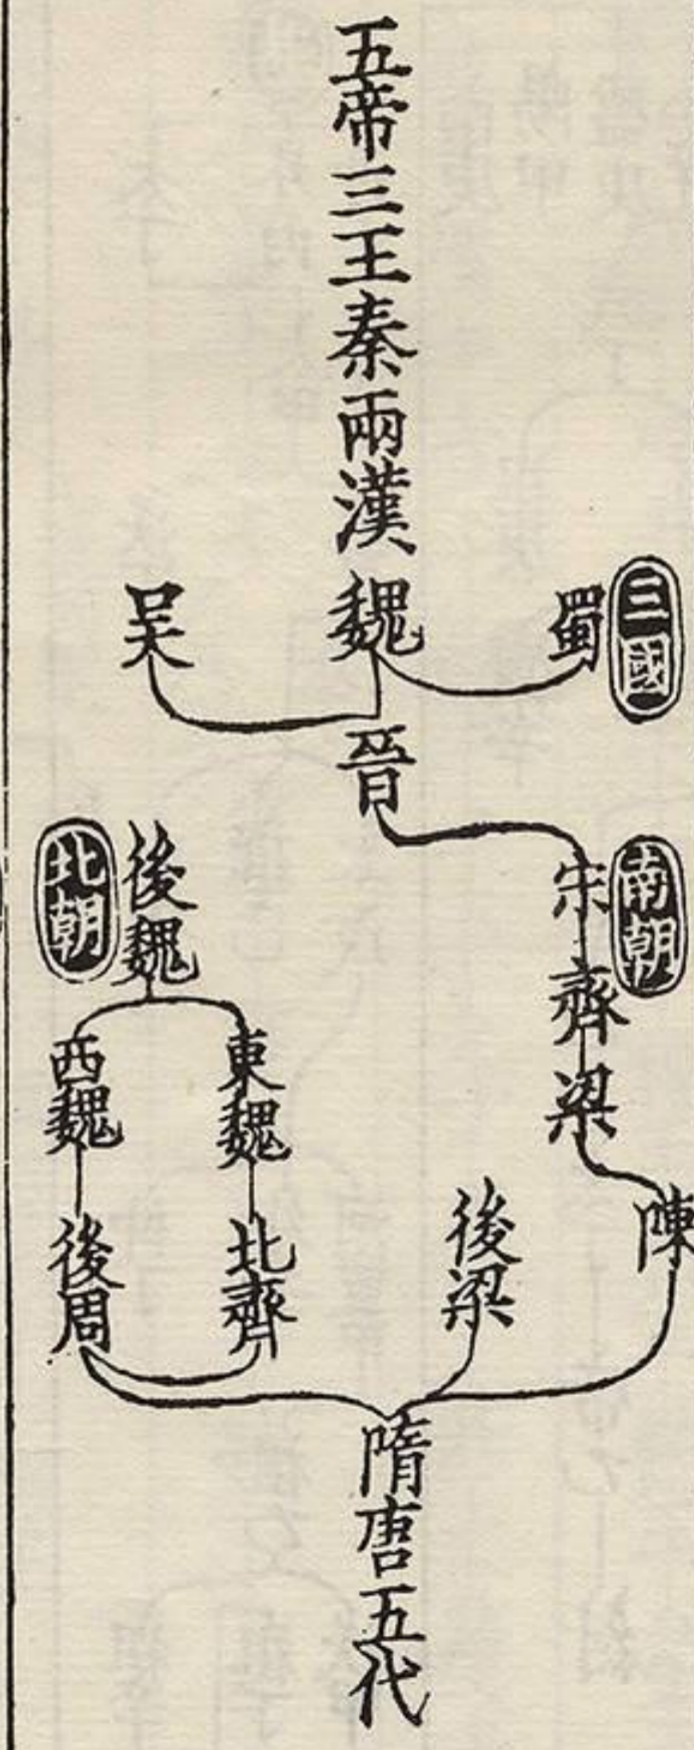 五帝三王秦兩漢
三國
蜀
魏
吴
晉
南朝
宋齊梁
陳
後梁
北朝
後魏
東魏
北齊
西魏
後周
隋唐五代